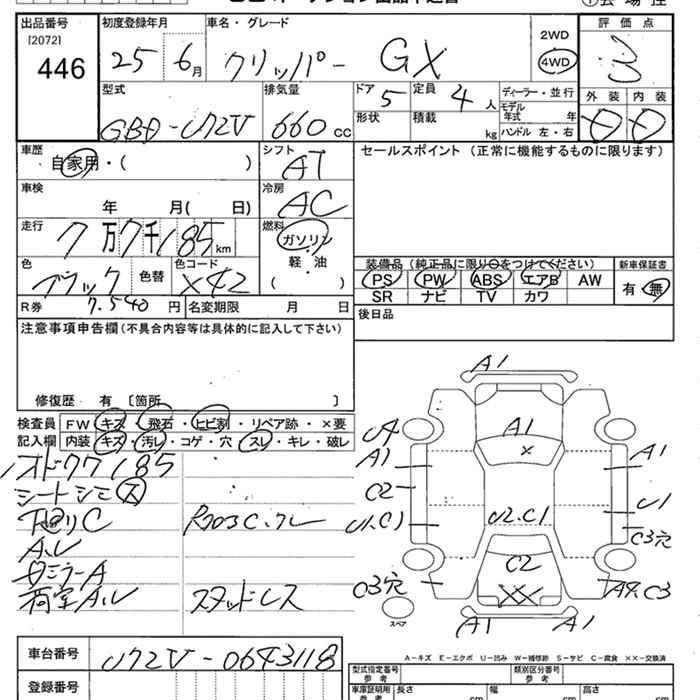 出品番号 初度登録年月 車名・グレード 評価点
[2072] 2WD
446 25年6月 クリッパー GX 4WD 3
型式 排気量 ドア 定員 ディーラー・並行 外装 内装
5 4人 モデル年式 年
GBD-U72V 660cc 形状 積載 kg ハンドル 左・右
車歴 シフト セールスポイント (正常に機能するものに限ります)
自家用・( ) AT
車検 冷房
年 月( 日) AC
走行 燃料
7万7千185km ガソリン
色 色替 色コード 軽・油 装備品 (純正品に限り○をつけてください) 新車保証書
ブラック X42 ( ) PS PW ABS エアB AW 有・無
R券 7.540円 名変期限 月 日 SR ナビ TV カワ
注意事項申告欄(不具合内容等は具体的に記入して下さい) 後日品
修復歴 有 〔箇所 〕
検査員 FW キズ・飛石・ヒビ割・リペア跡・×要
記入欄 内装 キズ・汚レ・コゲ・穴・スレ・キレ・破レ
オドクワ185
シートシミス
下廻りC
A,レ
スタッドレス
荷室A,レ
A1
A1
×
A1 A1
C2 U1
U1.C1 U2.C1 C3穴
C2
C3穴
スペア
A1 A1
A-キズ E-エクボ U-凹み W-補修跡 S-サビ C-腐食 ××-交換済
車台番号 U72V-0643118
型式指定番号 参考 類別区分番号 参考
登録番号 車庫証明用 参考 長さ cm 幅 cm 高さ cm